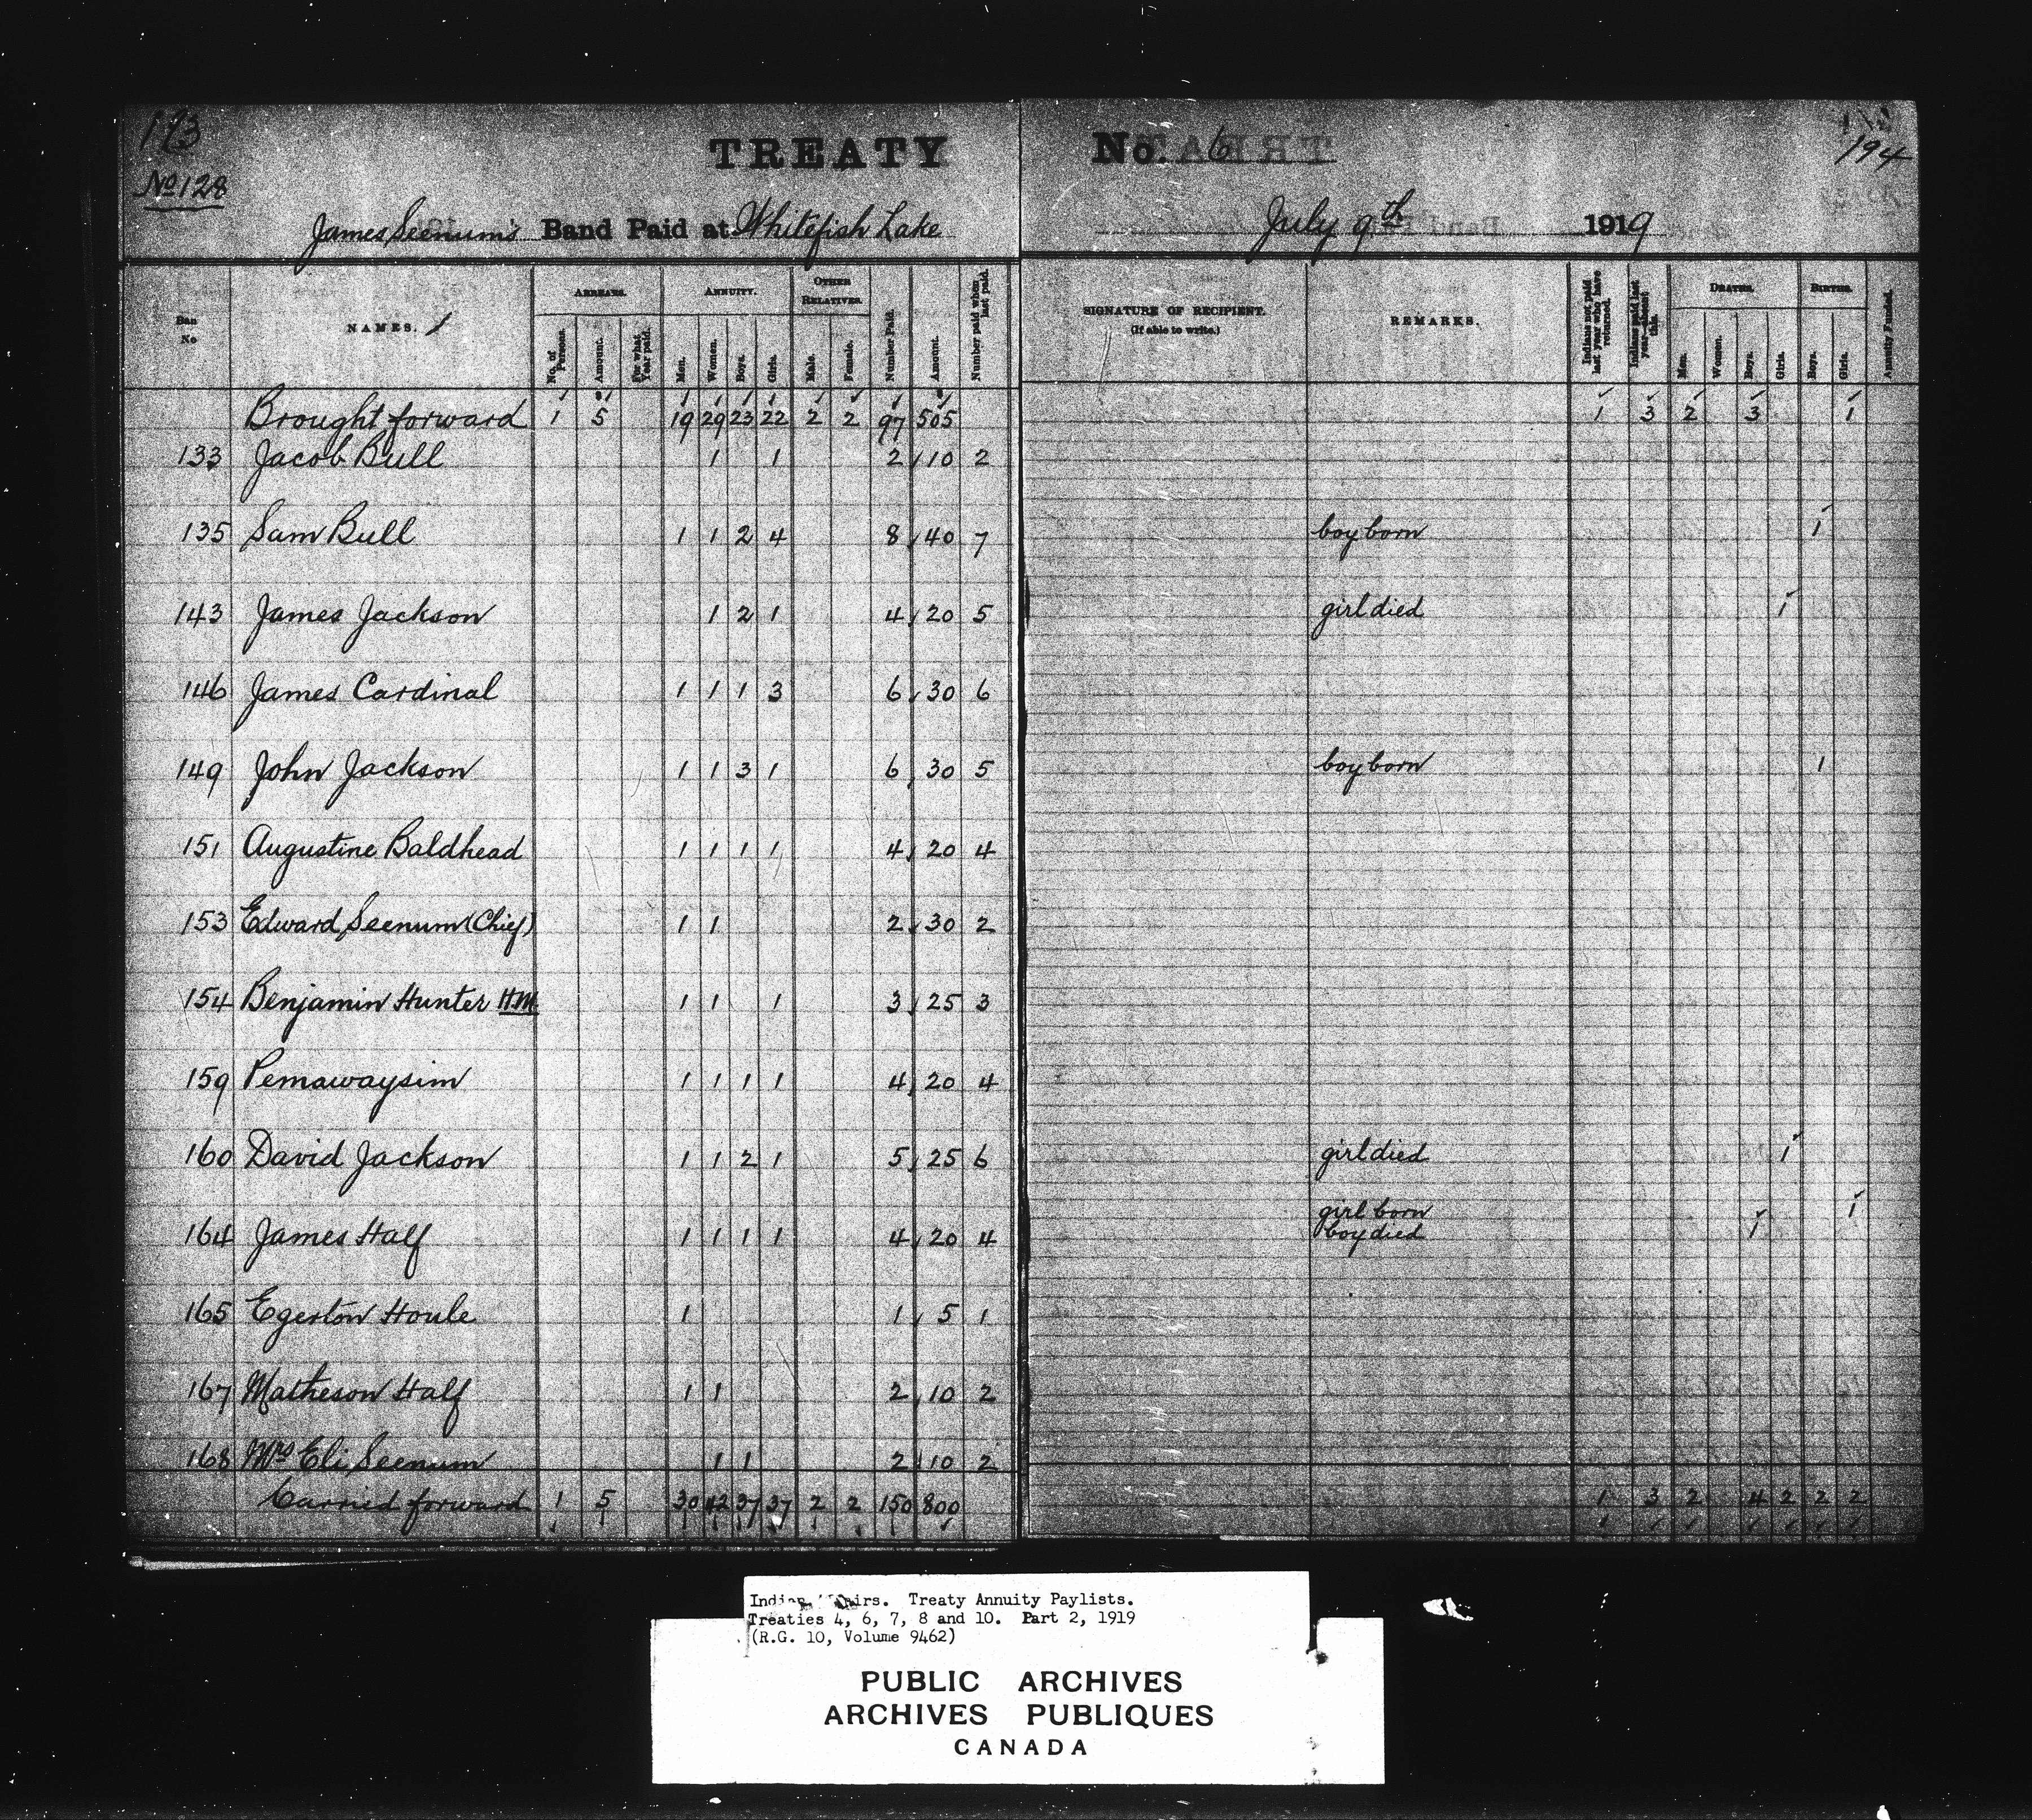 173
No 128
TREATY
James Seenum's Band Paid at Whitefish Lake
No. 6
194
July 9th 1919
Ban No
NAMES.
ARREARS.
No. of Persons.
Amount.
For what Year paid.
ANNUITY.
Men.
Women.
Boys.
Girls.
OTHER RELATIVES.
Male.
Female.
Number Paid.
Amount.
Number paid when last paid.
SIGNATURE OF RECIPIENT.
(If able to write.)
REMARKS.
Indians not paid last year who have returned.
Indians paid last year—absent this.
DEATHS.
Men.
Women.
Boys.
Girls.
BIRTHS.
Boys.
Girls.
Annuity Funds.
Brought forward 1 5 19 29 23 22 2 2 97 505 1 3 2 3 1
133 Jacob Bull 1 1 2 10 2
135 Sam Bull 1 1 2 4 8 40 7 boy born 1
143 James Jackson 1 2 1 4 20 5 girl died 1
146 James Cardinal 1 1 1 3 6 30 6
149 John Jackson 1 1 3 1 6 30 5 boy born 1
151 Augustine Baldhead 1 1 1 1 4 20 4
153 Edward Seenum (Chief) 1 1 2 30 2
154 Benjamin Hunter H.M. 1 1 1 3 25 3
159 Pemawaysim 1 1 1 1 4 20 4
160 David Jackson 1 1 2 1 5 25 6 girl died 1
girl born 1
164 James Half 1 1 1 1 4 20 4 boy died 1
165 Egerton Houle 1 1 5 1
167 Matheson Half 1 1 2 10 2
168 Mrs Eli Seenum 1 1 2 10 2
Carried forward 1 5 30 42 37 37 2 2 150 800 1 3 2 4 2 2 2
Indian Affairs. Treaty Annuity Paylists.
Treaties 4, 6, 7, 8 and 10. Part 2, 1919
(R.G. 10, Volume 9462)
PUBLIC ARCHIVES
ARCHIVES PUBLIQUES
CANADA